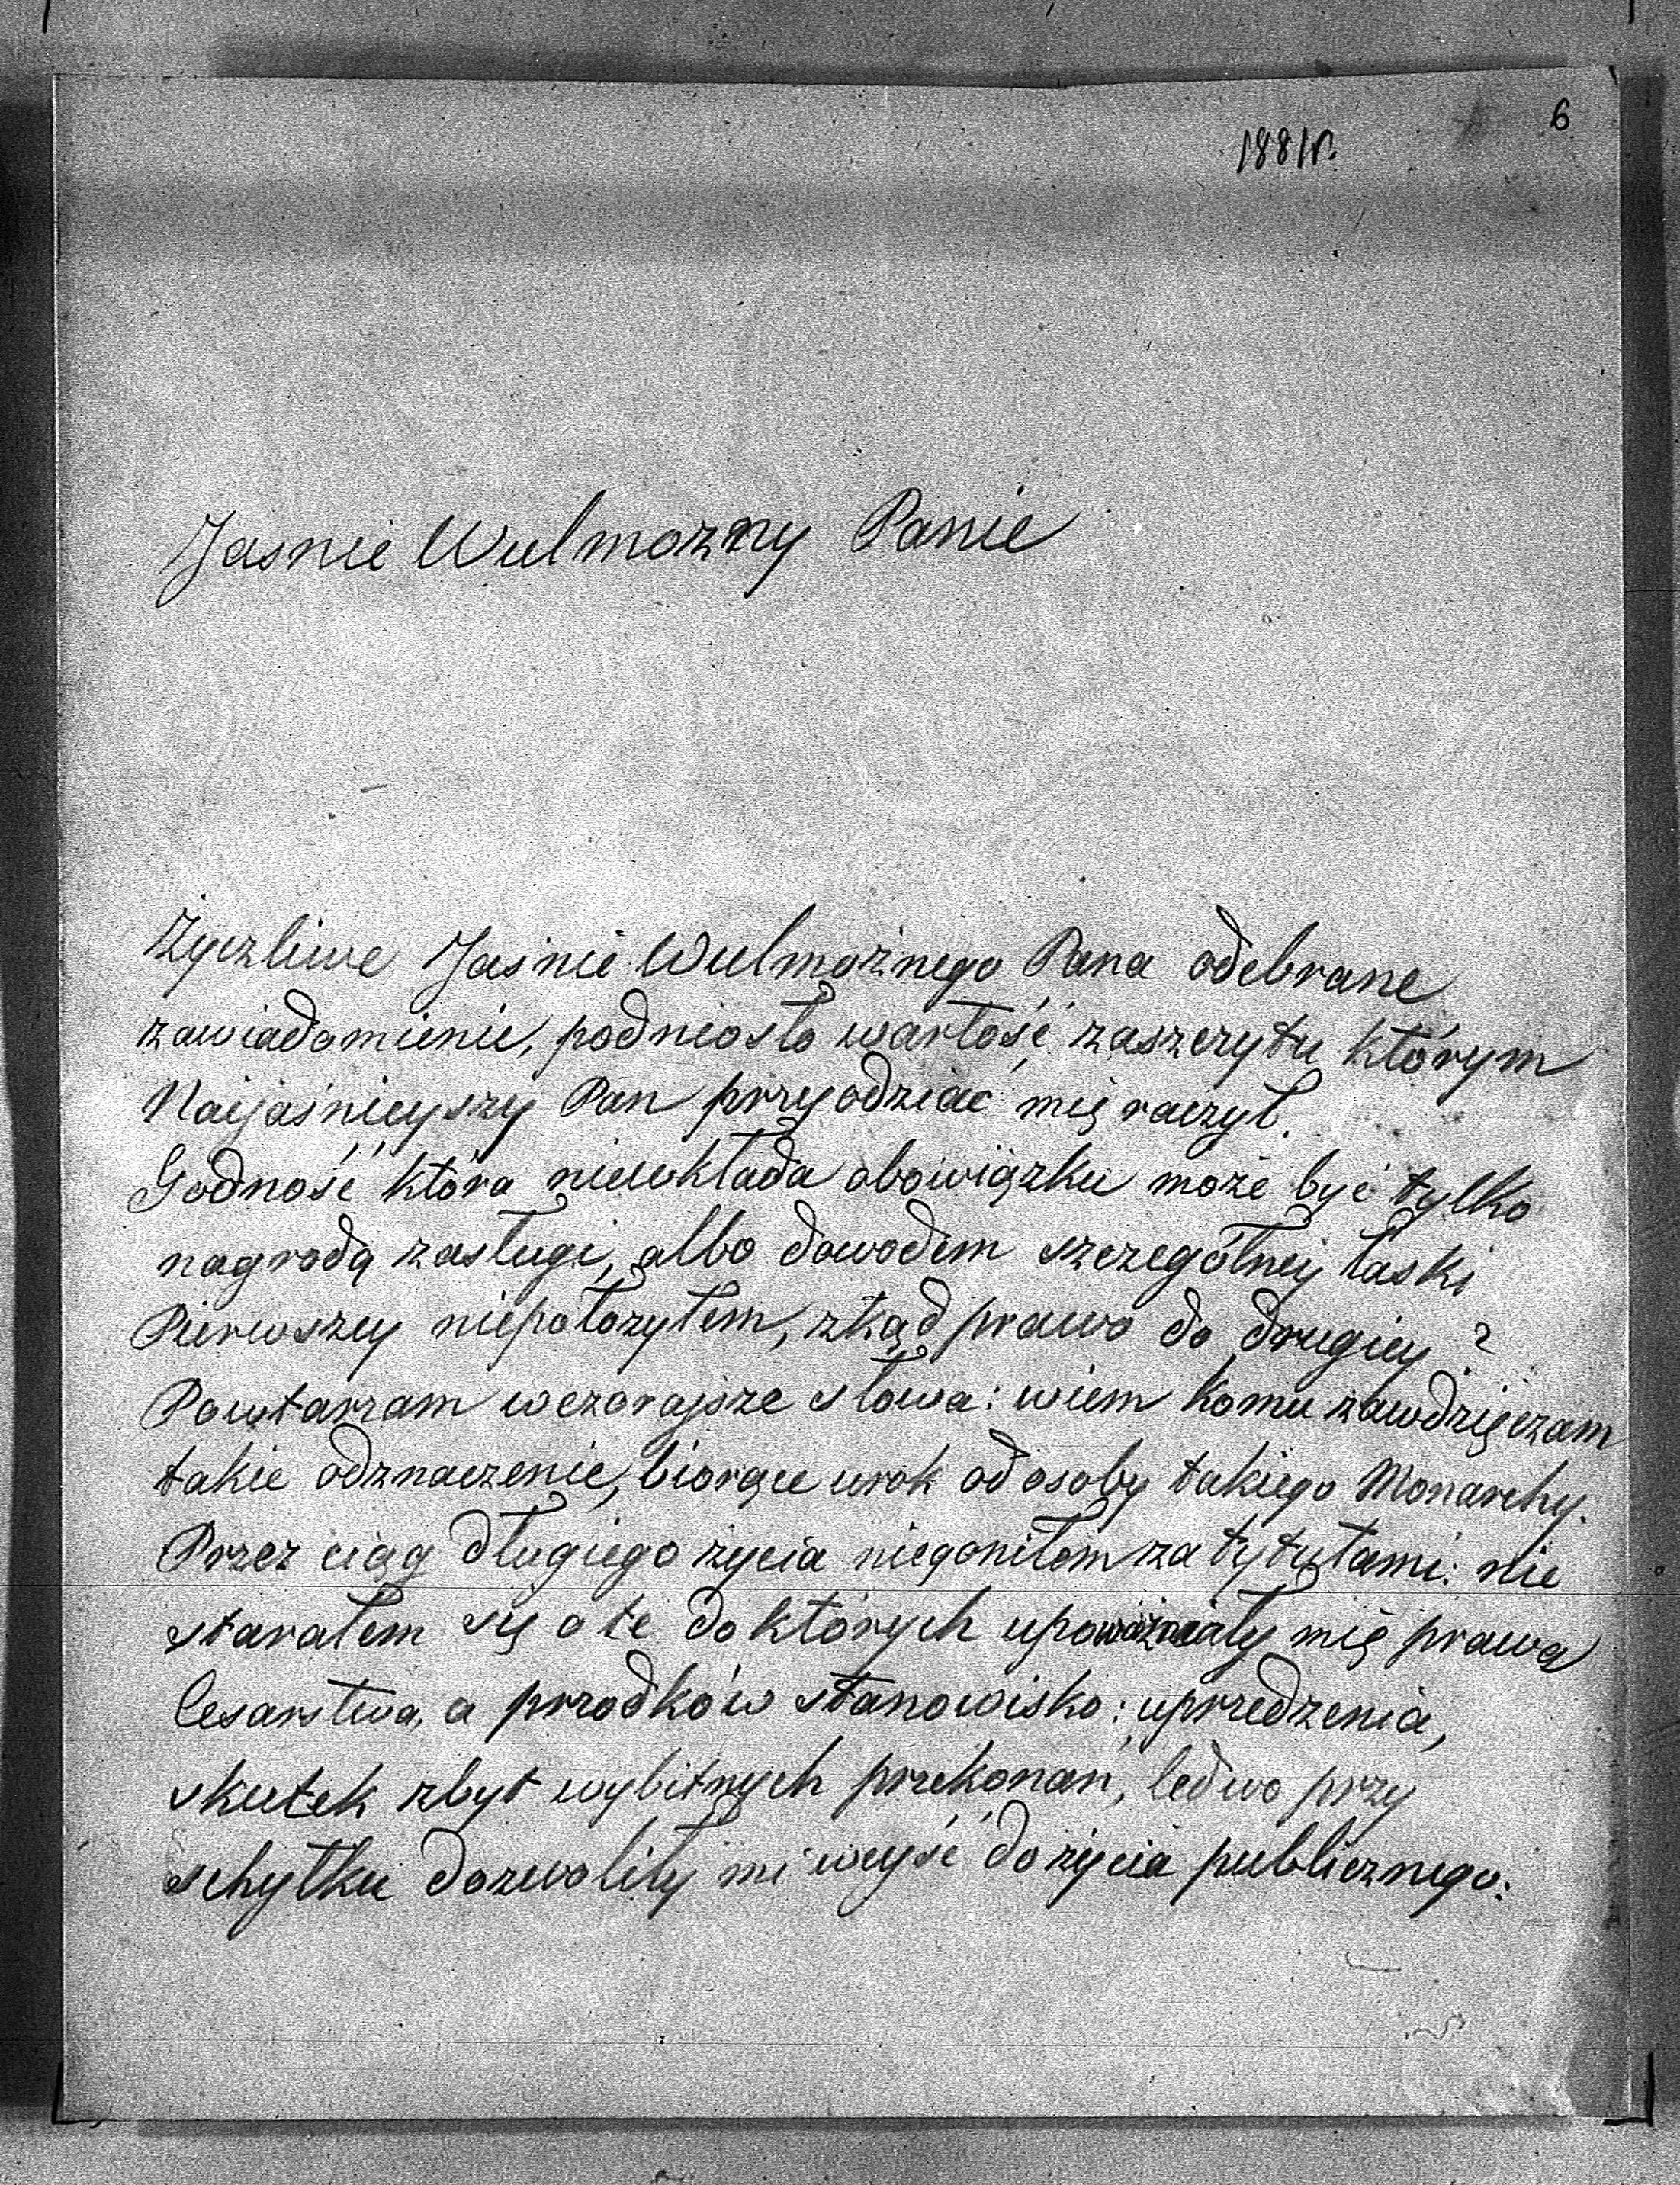 6
1881 r.
Jasnie Wielmozny Panie
Życzliwe Jaśnie Wielmożnego Pana odebrane
zawiadomienie, podniosło wartość zaszczytu którym
Naijaśnieyszy Pan przyodziać mię raczył.
Godność która niewkłada obowiązku może być tylko
nagrodą zasługi, albo dowodem szczególnej łaski
Pierwszey niepołozyłem, zkąd prawo do drugiey?
Powtarzam wczorajsze słowa: wiem komu zawdzięczam
takie odznaczenie, biorące urok od osoby takiego Monarchy.
Przez ciąg długiego życia niegoniłem za tytułami: nie
starałem się o te do których upoważniały mię prawa
Cesarstwa, a przodków stanowisko; uprzedzenia,
skutek zbyt wybitnych przekonań, ledwo przy
schyłku dozwoliły mi weyść do życia publicznego.